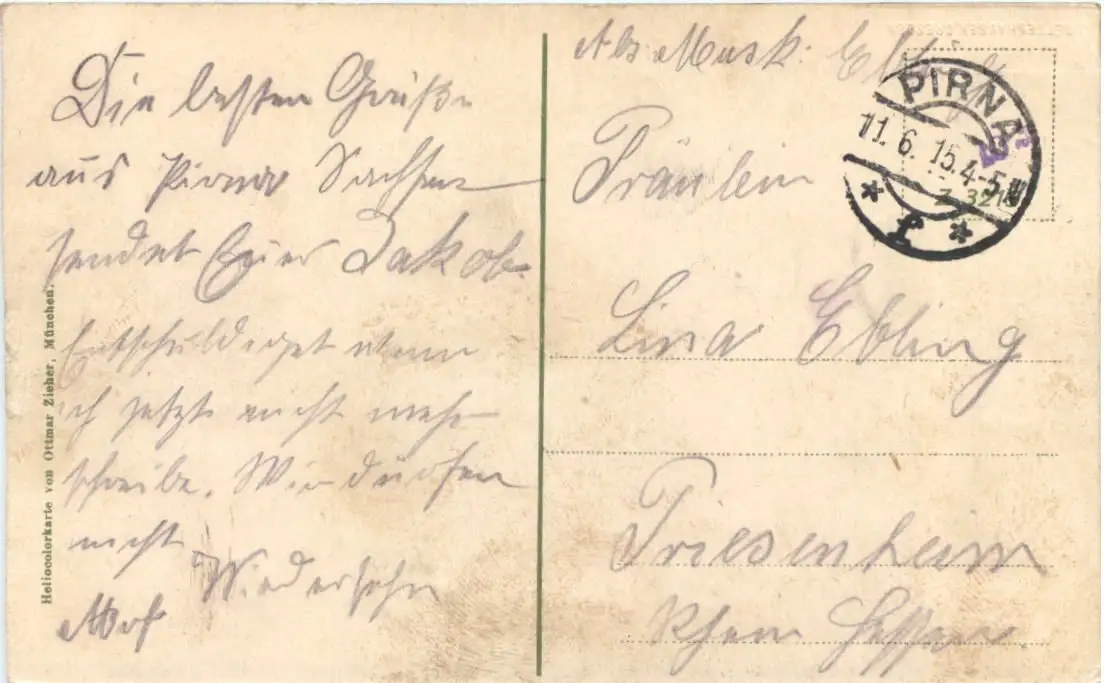 Die besten Grüße
aus Pirna Sachsen
sendet Euer Jakob.
Entschuldiget wenn
ich jetzt nicht mehr
schreibe. Wir dürfen
nicht
Wiedersehn
Heliocolorkarte von Ottmar Zieher, München.
Abs. Musk.
PIRNA
11. 6. 15. 4-5 N
Fräulein
Lina Ebling
Friesenheim
Rhein Hessen